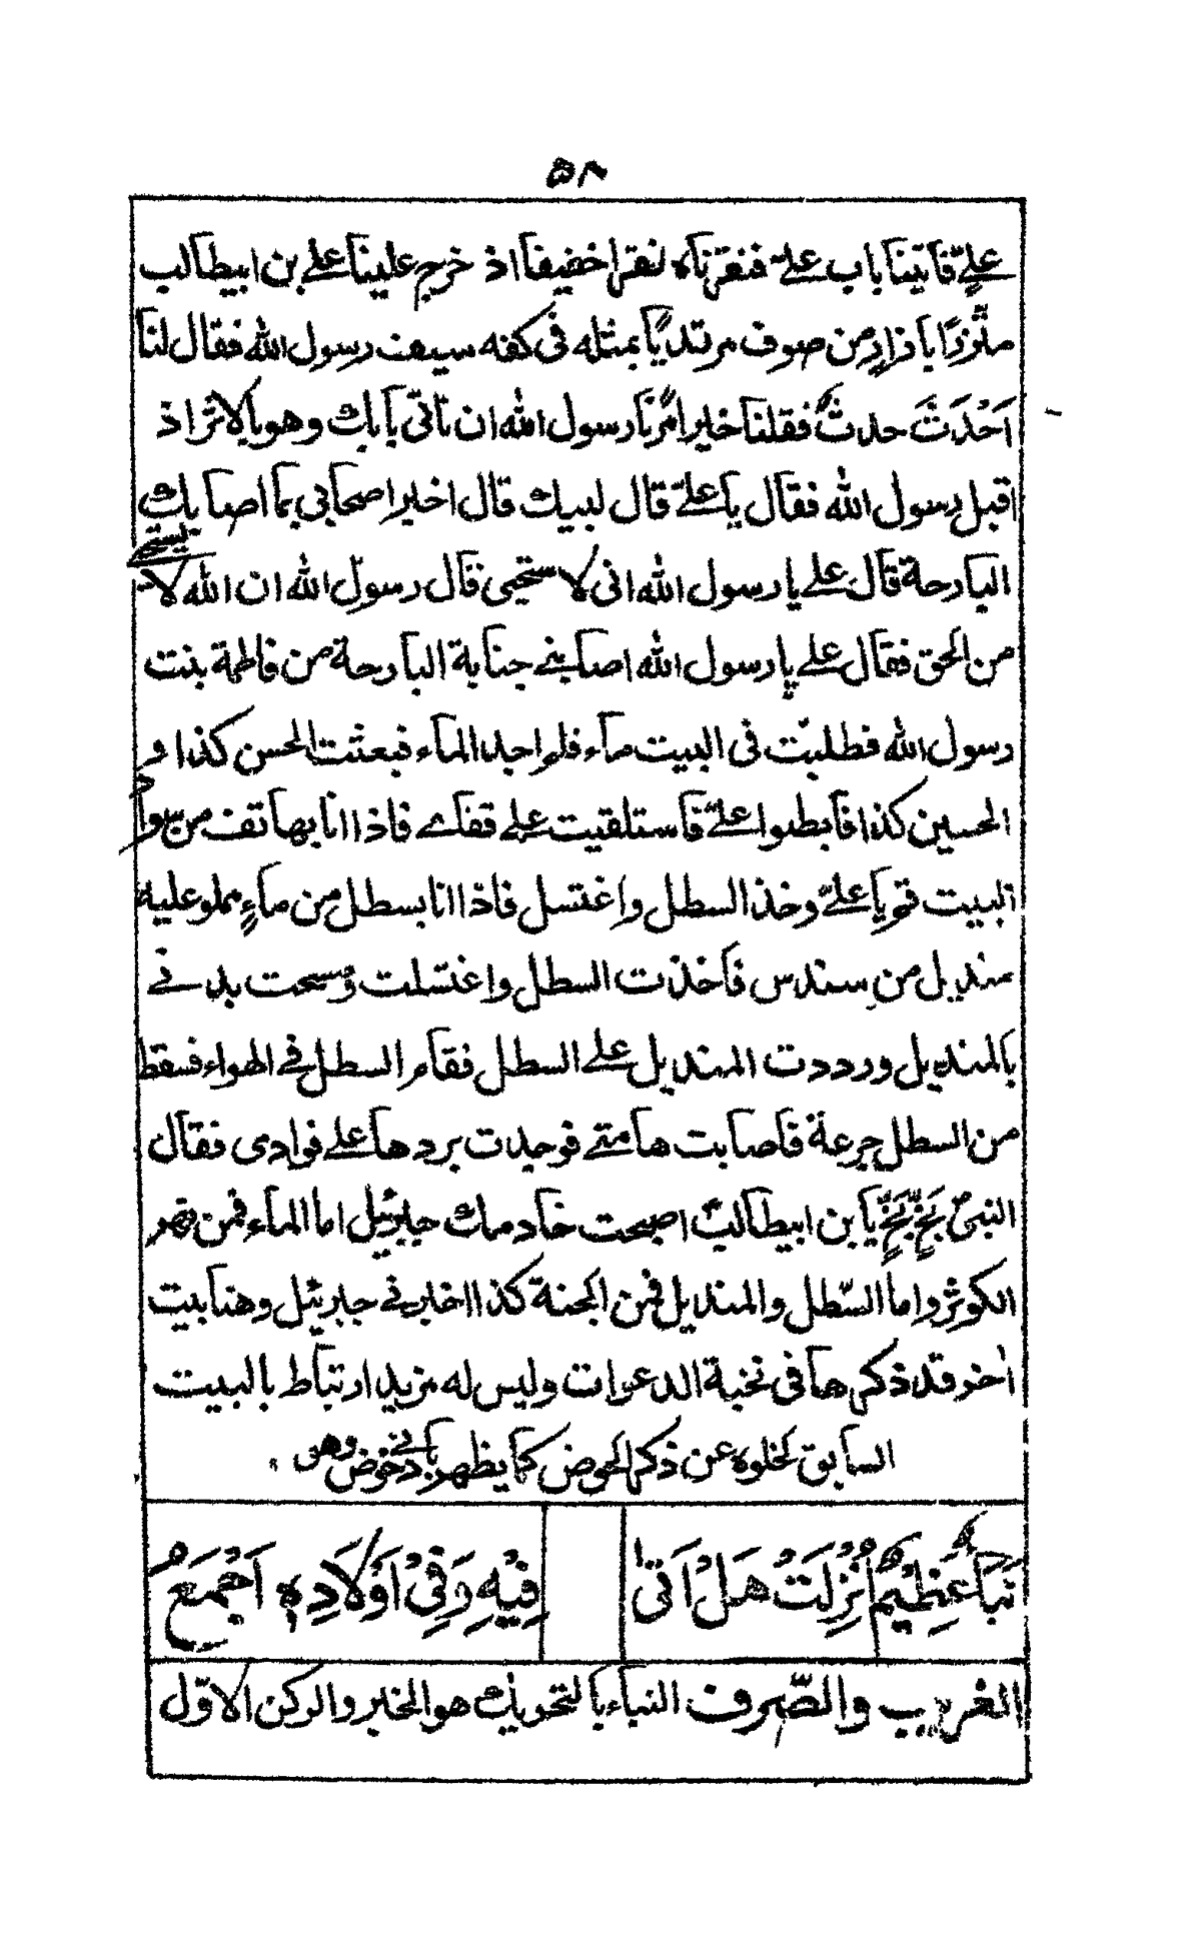 ۵۸
علیّ فاتینا باب علیّ فنقرناه نقرا خفیفا اذ خرج علینا علی بن ابیطالب
متّزرًا بازارٍ من صوف مرتدیًا بمثله فی کفه سیف رسول الله فقال لنا
اَحَدَثَ حدثٌ فقلنا خیر امرنا رسول الله ان ناتی بابک وهو بالاثر اذ
اقبل رسول الله فقال یا علیّ قال لبیک قال اخبر اصحابی بما اصابک
البارحة قال علی یا رسول الله انی لاستحیی قال رسول الله ان الله لا یستحی
من الحق فقال علی یا رسول الله اصابنی جنابة البارحة من فاطمة بنت
رسول الله فطلبت فی البیت ماء فلم اجد الماء فبعثت الحسن کذا و
الحسین کذا فابطوا علیّ فاستلقیت علی قفای فاذا انا بهاتف من سواد
البیت قم یا علیّ وخذ السطل واغتسل فاذا انا بسطل من ماءٍ مملو علیه
مندیل من سندس فاخذت السطل واغتسلت ومسحت بدنی
بالمندیل ورددت المندیل علی السطل فقام السطل فی الهواء فسقط
من السطل جرعة فاصابت هامتی فوجدت بردها علی فوادی فقال
النبیّ بَخٍّ بَخٍّ یا بن ابیطالب اصبحت خادمک جبرئیل اما الماء فمن نهر
الکوثر واما السّطل والمندیل فمن الجنة کذا اخبرنی جبرئیل وهنا بیت
اٰخر وقد ذکرها فی نخبة الدعوات ولیس له مزید ارتباط بالبیت
السابق لخلوه عن ذکر الحوض کما یظهر بادنی خوض وهی
نَبَأٌ عَظِیْمٌ اُنْزِلَتْ هَلْ اَتٰی فِیْهِ وَفِیْ اَوْلَادِهٖ اَجْمَعُ
الغریب والصّرف النباء بالتحریک هو الخبر والرکن الاوّل